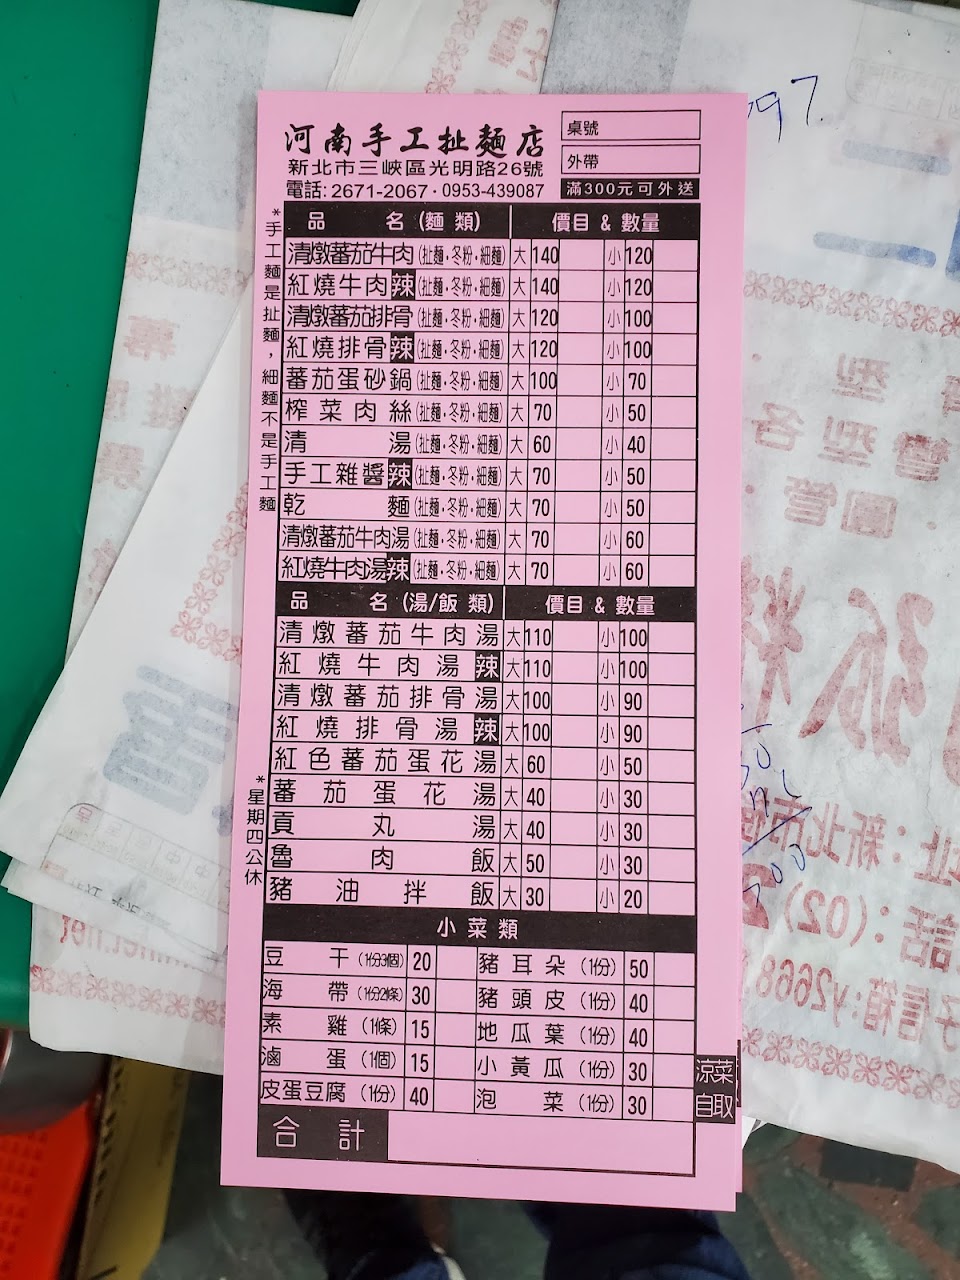 河南手工扯麵店
新北市三峽區光明路26號
電話:2671-2067·0953-439087
桌號
外帶
滿300元可外送
*手工麵是扯麵,細麵不是手工麵
品 名(麵 類) 價目 & 數量
清燉蕃茄牛肉(扯麵·冬粉·細麵) 大 140 小 120
紅燒牛肉辣(扯麵·冬粉·細麵) 大 140 小 120
清燉蕃茄排骨(扯麵·冬粉·細麵) 大 120 小 100
紅燒排骨辣(扯麵·冬粉·細麵) 大 120 小 100
蕃茄蛋砂鍋(扯麵·冬粉·細麵) 大 100 小 70
榨菜肉絲(扯麵·冬粉·細麵) 大 70 小 50
清湯(扯麵·冬粉·細麵) 大 60 小 40
手工雜醬辣(扯麵·冬粉·細麵) 大 70 小 50
乾麵(扯麵·冬粉·細麵) 大 70 小 50
清燉蕃茄牛肉湯(扯麵·冬粉·細麵) 大 70 小 60
紅燒牛肉湯辣(扯麵·冬粉·細麵) 大 70 小 60
品 名(湯/飯 類) 價目 & 數量
清燉蕃茄牛肉湯 大 110 小 100
紅燒牛肉湯辣 大 110 小 100
清燉蕃茄排骨湯 大 100 小 90
紅燒排骨湯辣 大 100 小 90
紅色蕃茄蛋花湯 大 60 小 50
蕃茄蛋花湯 大 40 小 30
貢丸湯 大 40 小 30
魯肉飯 大 50 小 30
豬油拌飯 大 30 小 20
*星期四公休
小菜類
豆干(1份3個) 20 豬耳朵(1份) 50
海帶(1份2條) 30 豬頭皮(1份) 40
素雞(1條) 15 地瓜葉(1份) 40
滷蛋(1個) 15 小黃瓜(1份) 30
皮蛋豆腐(1份) 40 泡菜(1份) 30
涼菜
自取
合計